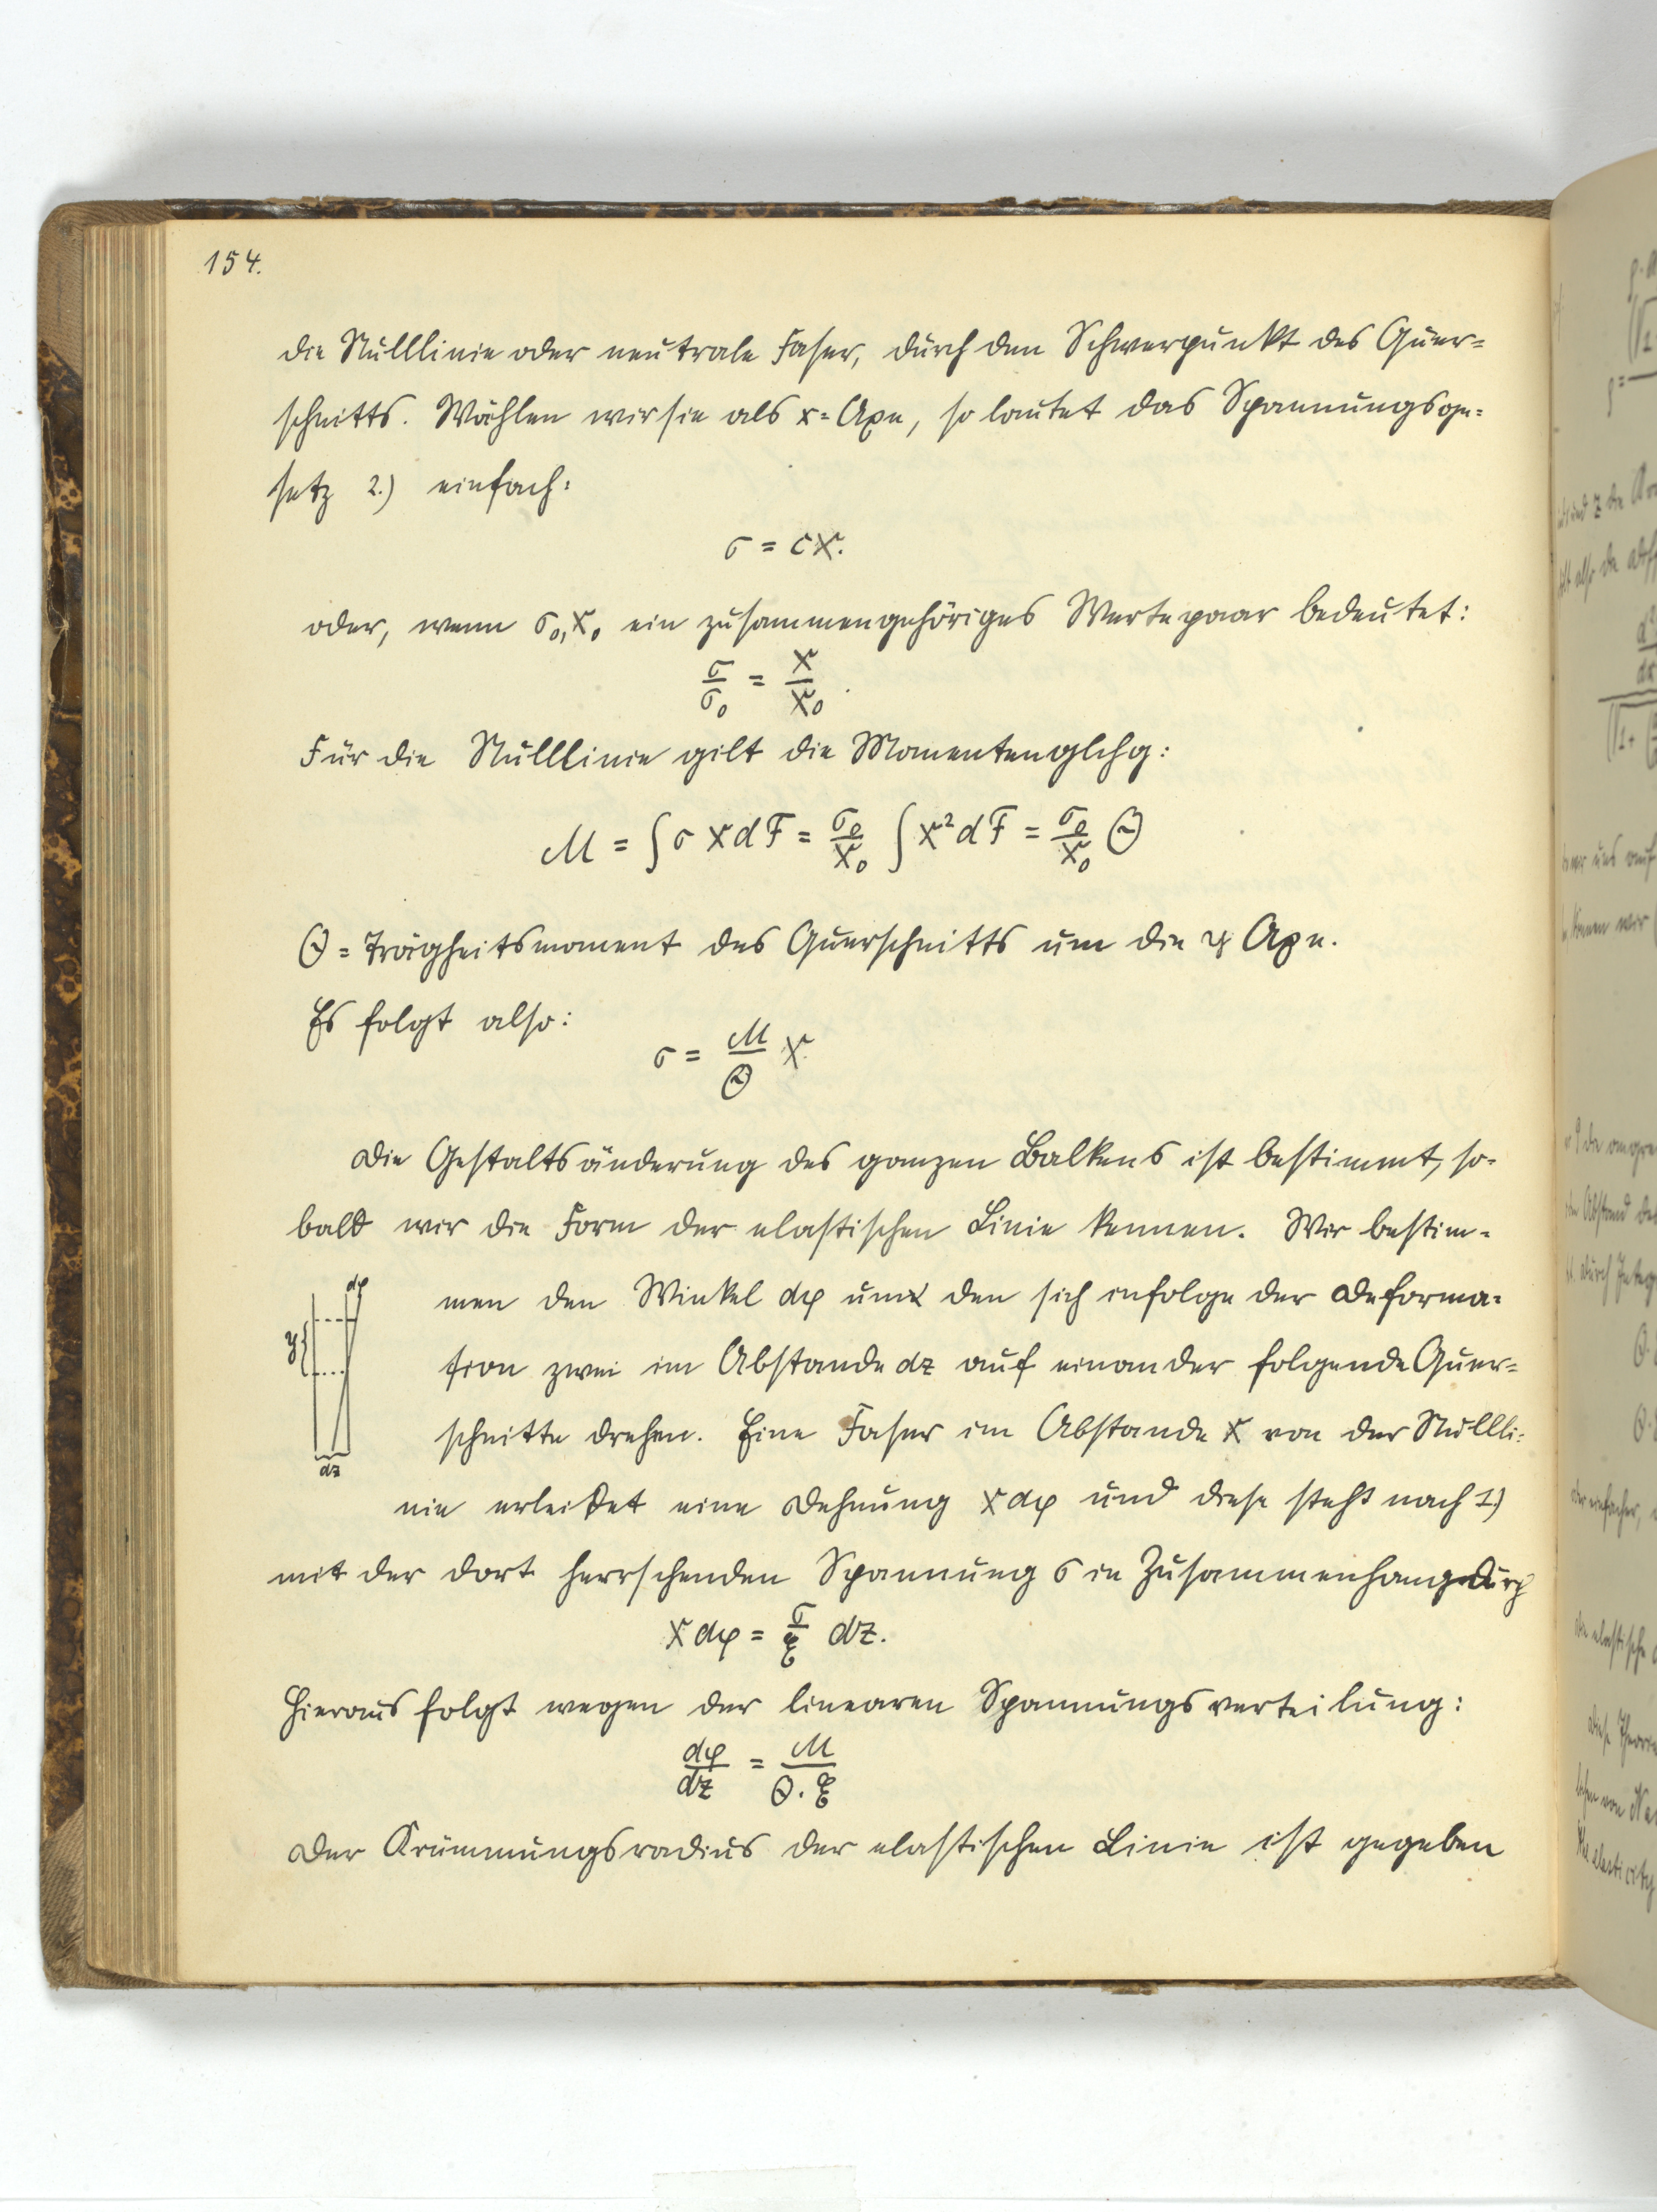 154.
die Nulllinie oder neutrale Faser, durch den Schwerpunkt des Quer=
schnitts. Wählen wir sie als x=Axe, so lautet das Spannungsge=
setz 2.) einfach:
σ = cx.
oder, wenn σ₀, x₀ ein zusammengehöriges Wertepaar bedeutet:
σ/σ₀ = x/x₀.
Für die Nulllinie gilt die Momentenglchg:
M = ∫σ x dF = σ₀/x₀ ∫x² dF = σ₀/x₀ Θ
Θ = Trägheitsmoment des Querschnitts um die y Axe.
Es folgt also:
σ = M/Θ x
Die Gestaltsänderung des ganzen Balkens ist bestimmt, so-
bald wir die Form der elastischen Linie kennen. Wir bestim-
men den Winkel dφ um den sich infolge der Deforma=
tion zwei im Abstande dz auf einander folgende Quer=
schnitte drehen. Eine Faser im Abstande x von der Nullli=
nie erleidet eine Dehnung x dφ und diese steht nach 1.)
mit der dort herrschenden Spannung σ in Zusammenhang durch
dφ
y
dz
x dφ = σ/E dz.
Hieraus folgt wegen der linearen Spannungsverteilung:
dφ/dz = M/Θ.E
Der Krümmungsradius der elastischen Linie ist gegeben